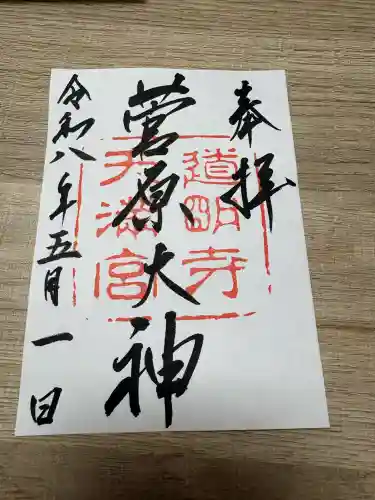 奉拝
道明寺
天満宮
菅原大神
令和八年五月一日